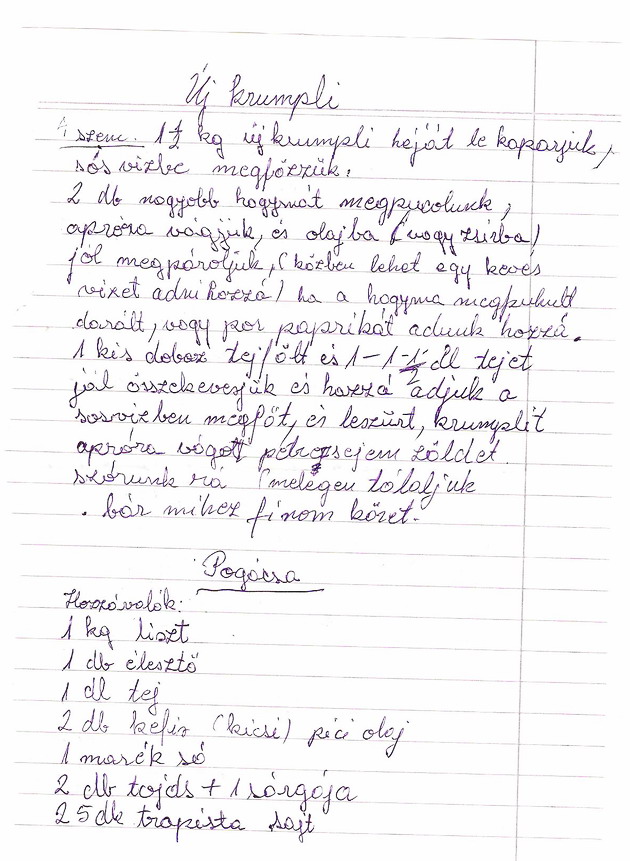 Új krumpli
4 szem. 1 1/2 kg új krumpli héját le kaparjuk,
sós vizbe megfőzzük.
2 db nagyobb hagymát megpucolunk,
apróra vágjuk, és olajba (vagy zsirba)
jól megpároljuk, (közben lehet egy kevés
vizet adni hozzá) ha a hagyma megpuhult
darált, vagy por paprikát adunk hozzá.
1 kis doboz tejfölt és 1-1-1/2 dl tejet
jál összekeverjük és hozzá adjuk a
sosvizben megfőt, és leszürt, krumplit
apróra vágott petrezsejem zöldet
szórunk ra (melegen tálaljuk
. bár mihez finom köret.
Pogácsa
Hozzávalók:
1 kg liszt
1 db élesztő
1 dl tej
2 db kefir (kicsi) pici olaj
1 marék só
2 db tojás + 1 sárgája
25 dk trapista sajt